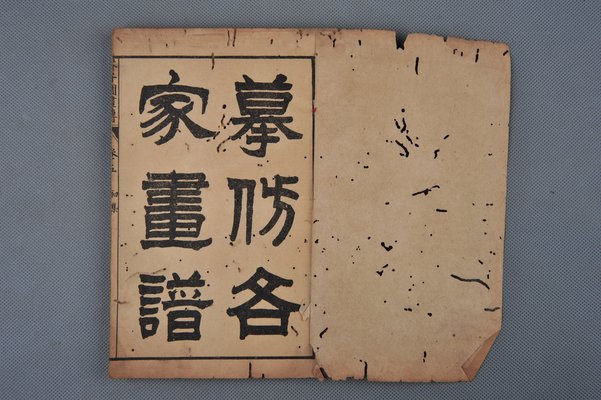 摹仿各
家畫譜